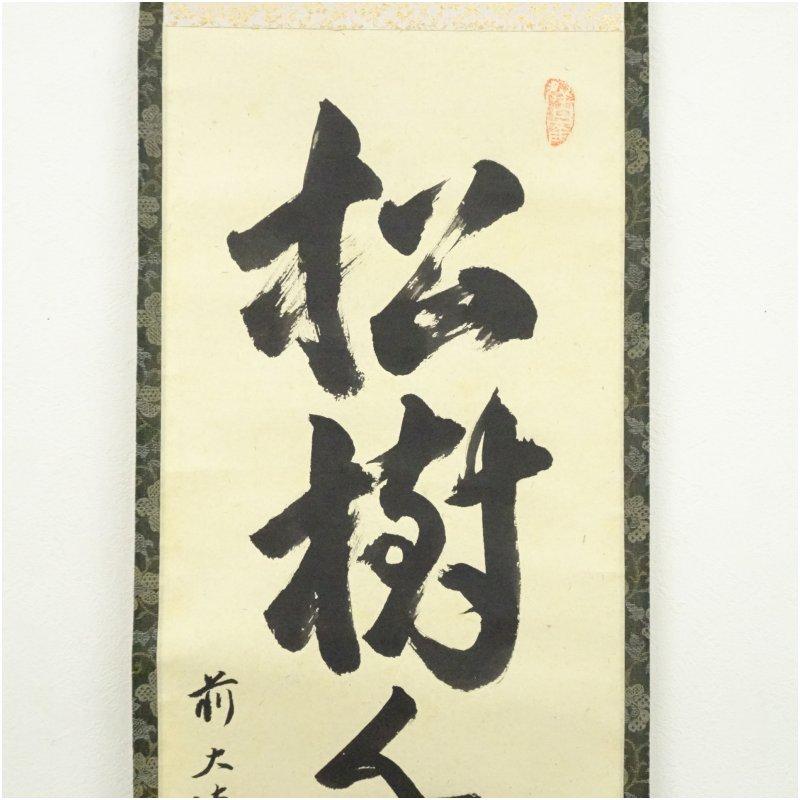 松樹
前大